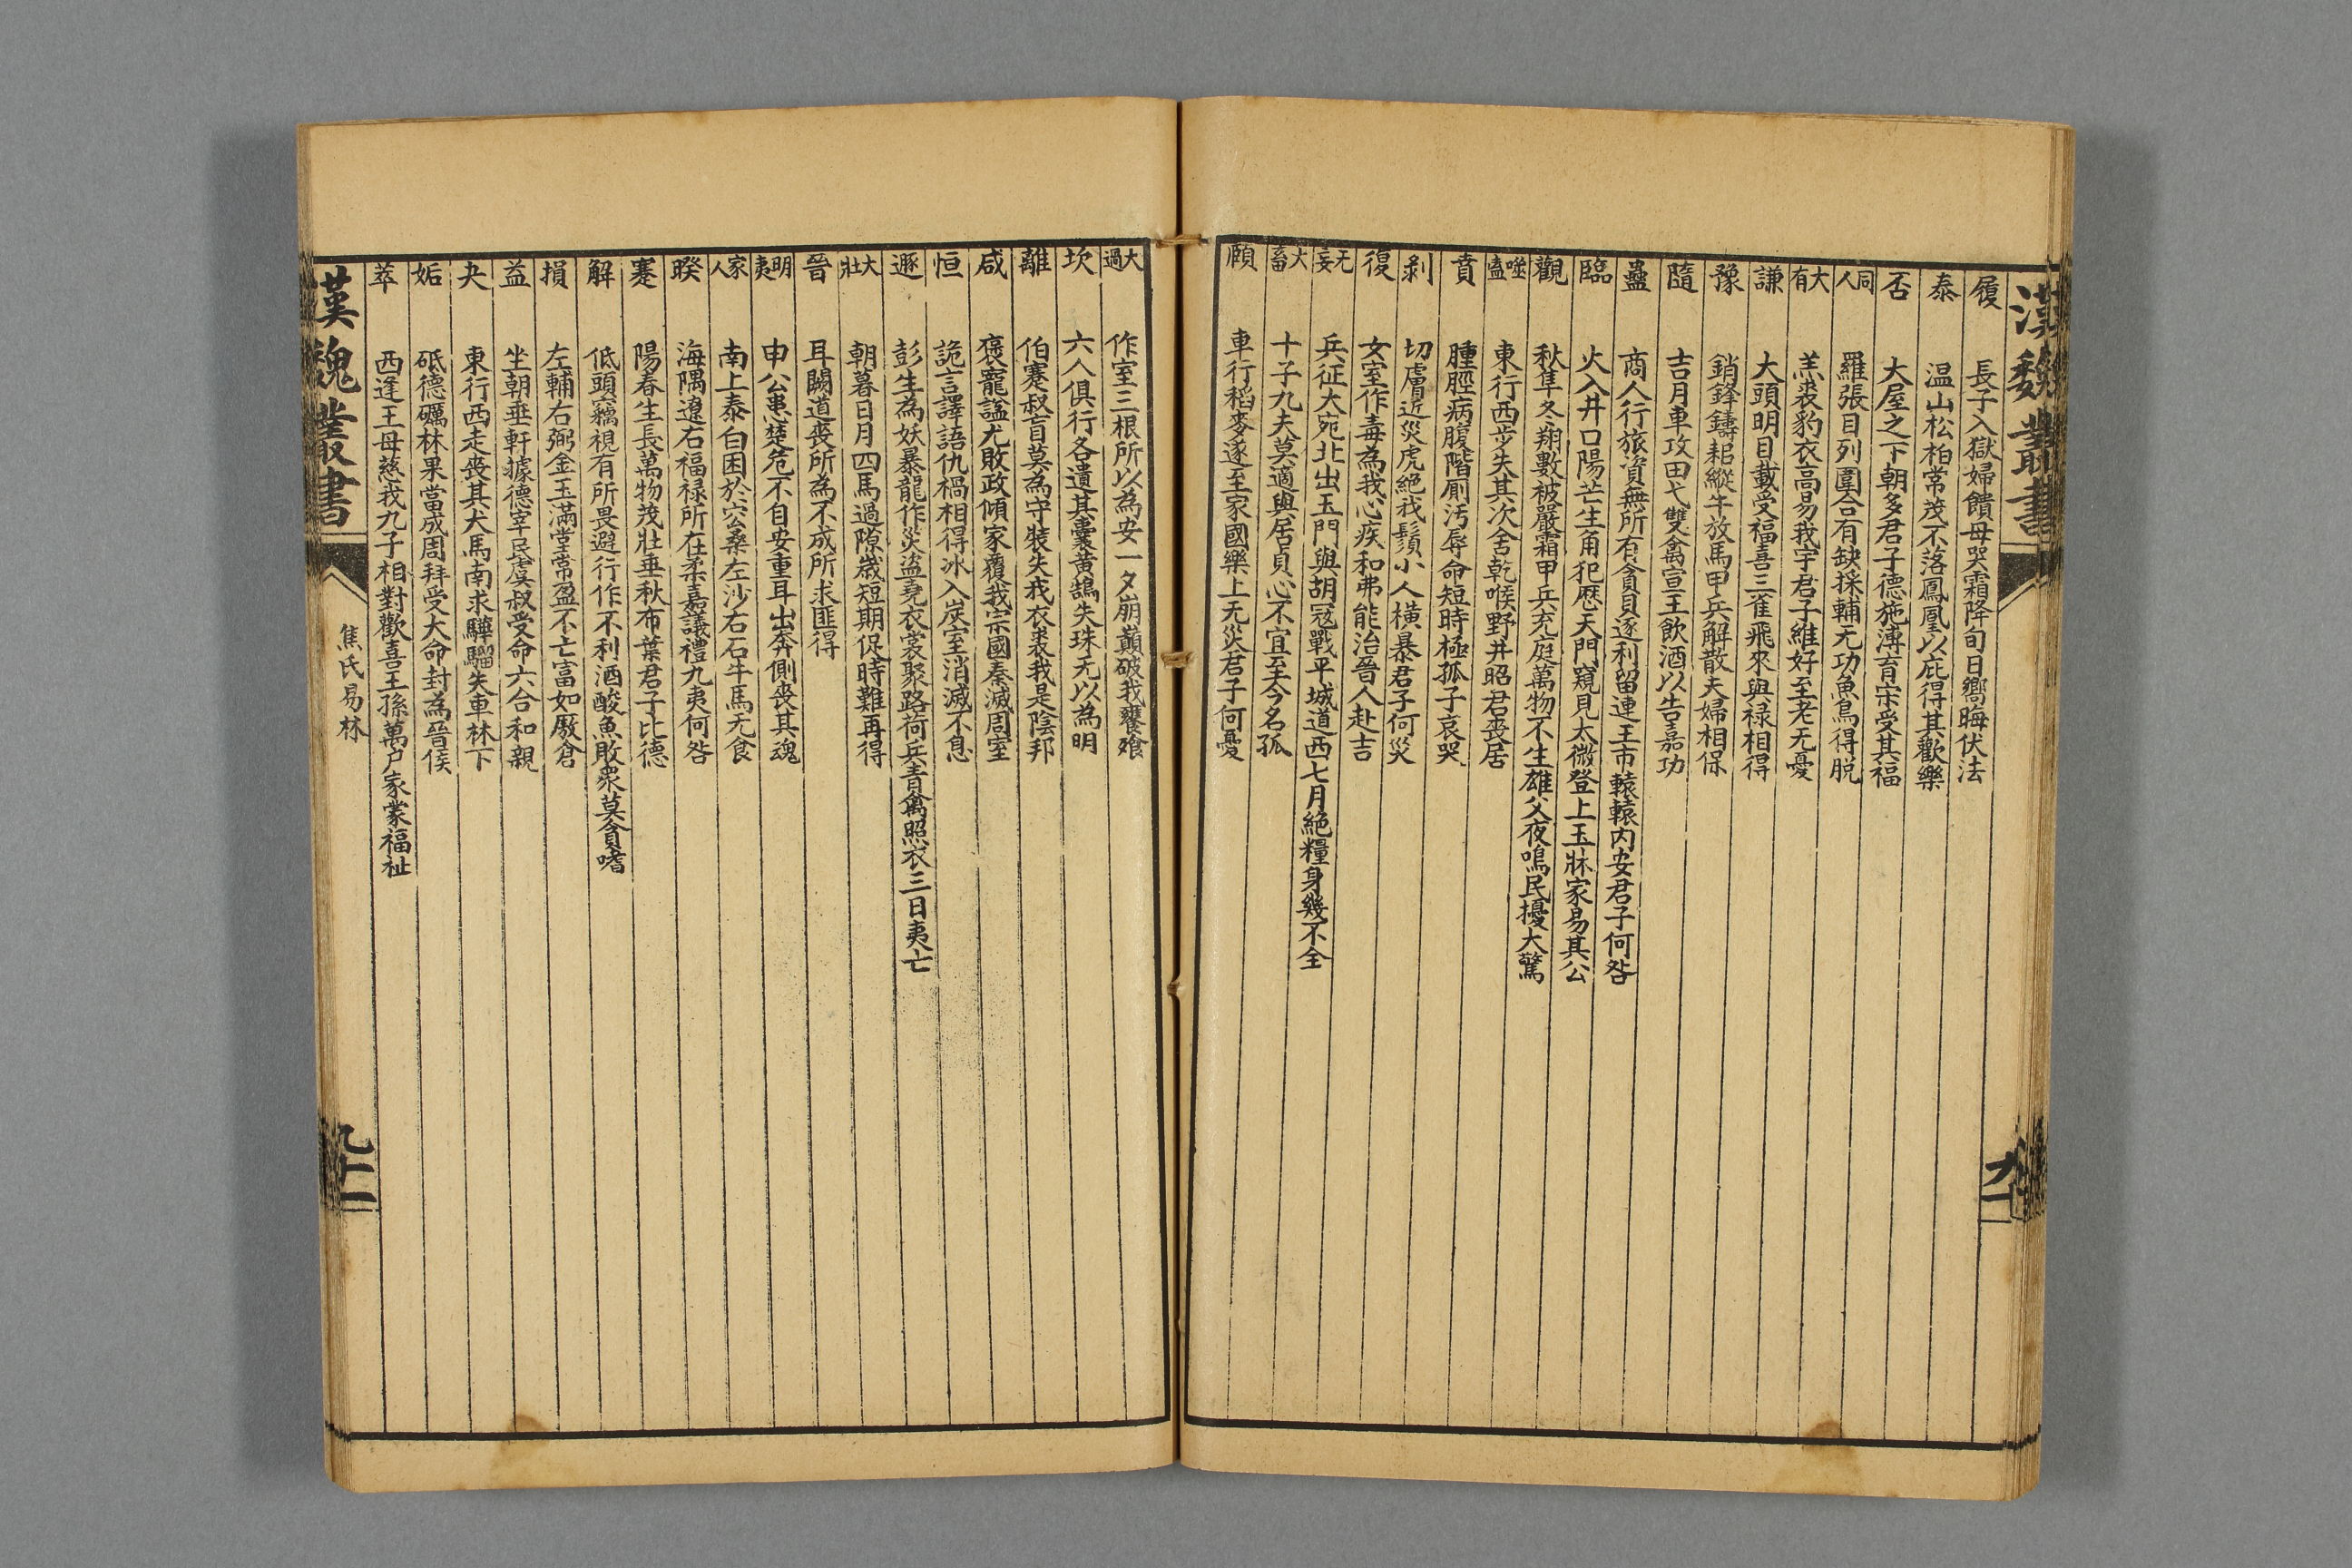 漢魏叢書
履 長子入獄婦饋母哭霜降旬日嚮晦伏法
泰 温山松柏常茂不落鳳凰以庇得其歡樂
否 大屋之下朝多君子德施溥育宋受其福
同人 羅張目列圍合有缺採輔无功魚鳥得脱
大有 羔裘豹衣高易我宇君子維好至老无憂
謙 大頭明目載受福喜三雀飛來與禄相得
豫 銷鋒鑄耜縱牛放馬甲兵解散夫婦相保
隨 吉月車攻田弋雙禽宣王飲酒以告嘉功
蠱 商人行旅資無所有貪貝逐利留連王市轅轅内安君子何咎
臨 火入井口陽芒生角犯歷天門窺見太微登上玉牀家易其公
觀 秋隼冬翔數被嚴霜甲兵充庭萬物不生雄父夜鳴民擾大驚
噬嗑 東行西步失其次舍乾喉野井昭君喪居
賁 腫脛病腹階厠汚辱命短時極孤子哀哭
剥 切膚近災虎絶我鬚小人横暴君子何災
復 女室作毒為我心疾和弗能治晉人赴吉
无妄 兵征大宛北出玉門與胡冦戰平城道西七月絶糧身幾不全
大畜 十子九夫莫適與居貞心不宜至今名孤
頤 車行稻麥遂至家國樂上无災君子何憂
大過 作室三根所以為安一夕崩巔破我饔飧
坎 六人俱行各遺其囊黄鵠失珠无以為明
離 伯蹇叔盲莫為守裝失我衣裘我是陰邦
咸 褒寵謚尤敗政傾家覆我宗國秦滅周室
恒 詭言譯語仇禍相得冰入炭室消滅不息
遯 彭生為妖暴龍作災盜堯衣裳聚路荷兵青禽照衣三日夷亡
大壯 朝暮日月四馬過隙歲短期促時難再得
晉 耳闕道喪所為不成所求匪得
明夷 申公患楚危不自安重耳出奔側喪其魂
家人 南上泰白困於空桑左沙右石牛馬无食
睽 海隅遼右福禄所在柔嘉議禮九夷何咎
蹇 陽春生長萬物茂壯垂秋布葉君子比德
解 低頭竊視有所畏避行作不利酒酸魚敗衆莫貪嗜
損 左輔右弼金玉滿堂常盈不亡富如厫倉
益 坐朝垂軒據德宰民虞叔受命六合和親
夬 東行西走喪其犬馬南求驊騮失車林下
姤 砥德礪林果當成周拜受大命封為晉侯
萃 西逢王母慈我九子相對歡喜王孫萬户家蒙福祉
漢魏叢書
焦氏易林
九十一